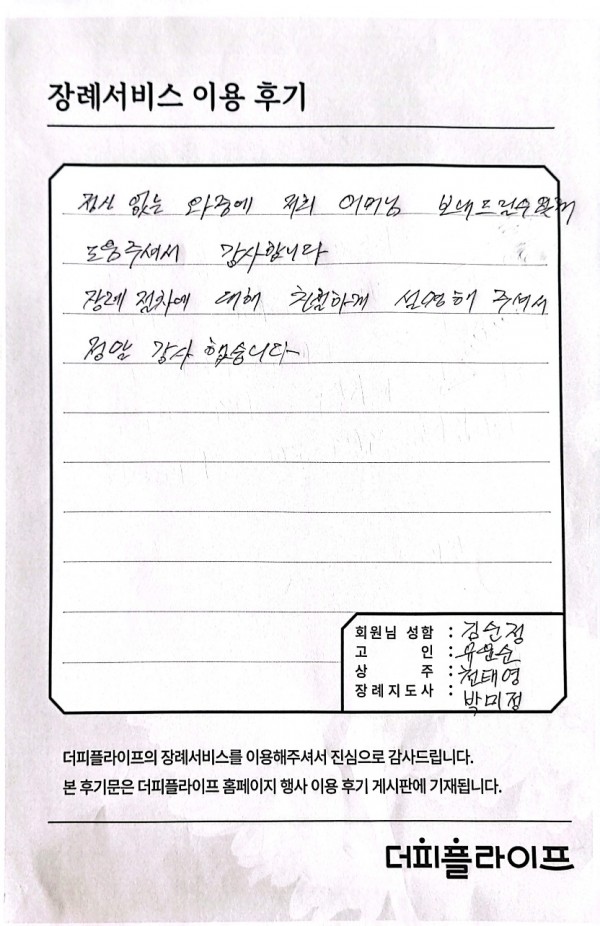 장례서비스 이용 후기
정신 없는 와중에 저희 어머님 보내드릴수있게
도움주셔서 감사합니다
장례 절차에 대해 친절하게 설명해 주셔서
정말 감사 했습니다
회원님 성함 : 김순정
고 인 : 유순
상 주 : 천태영
장례지도사 : 박미정
더피플라이프의 장례서비스를 이용해주셔서 진심으로 감사드립니다.
본 후기문은 더피플라이프 홈페이지 행사 이용 후기 게시판에 기재됩니다.
더피플라이프